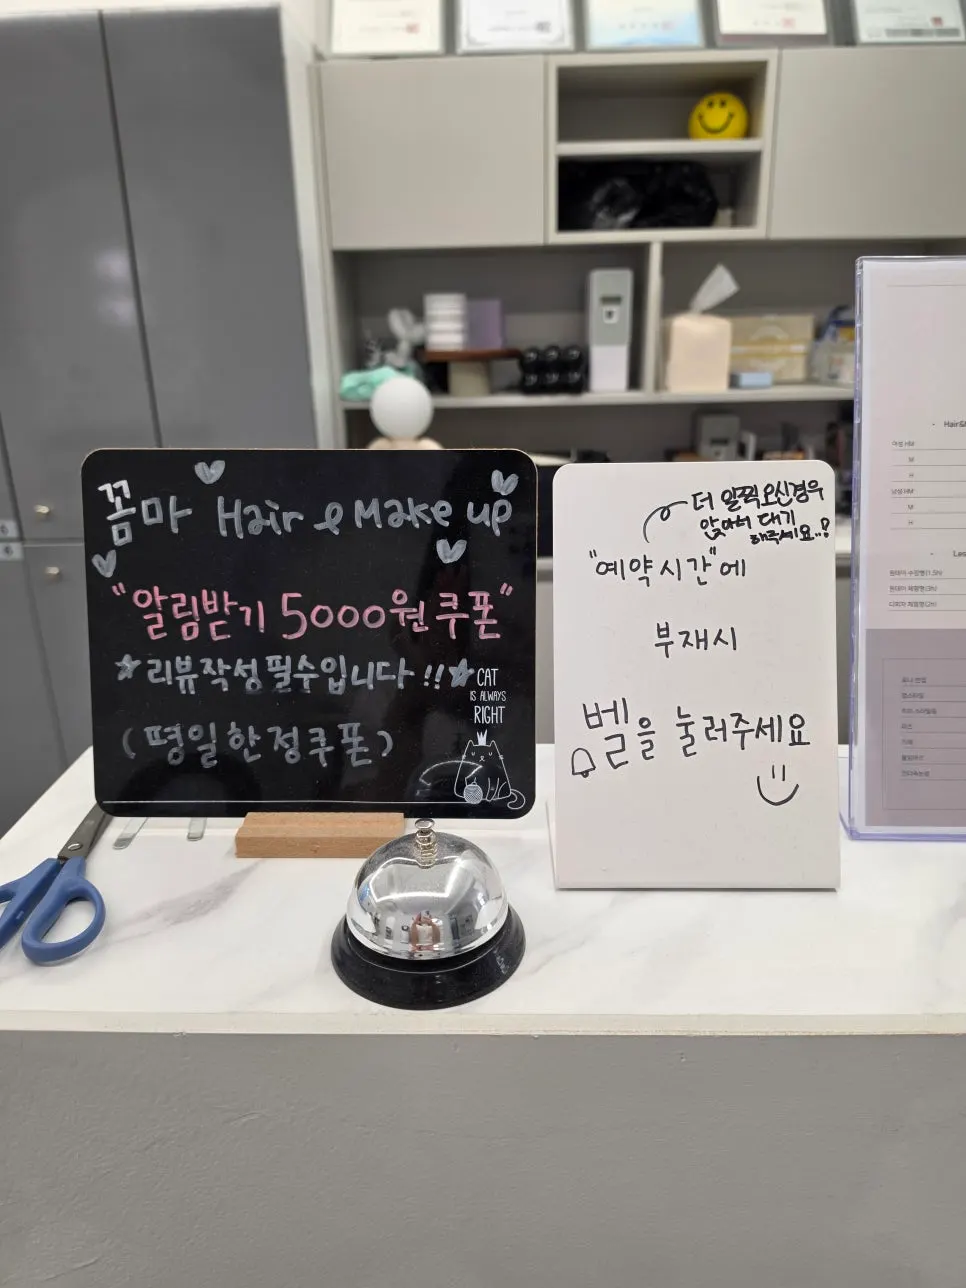 꼼마 Hair & Make up
"알림받기 5000원 쿠폰"
★리뷰작성 필수입니다!!★
(평일한정쿠폰)
CAT
IS ALWAYS
RIGHT
더 일찍 오신경우
앉아서 대기
해주세요..!
"예약시간"에
부재시
벨을 눌러주세요
여성 HM
M
H
남성 HM
M
H